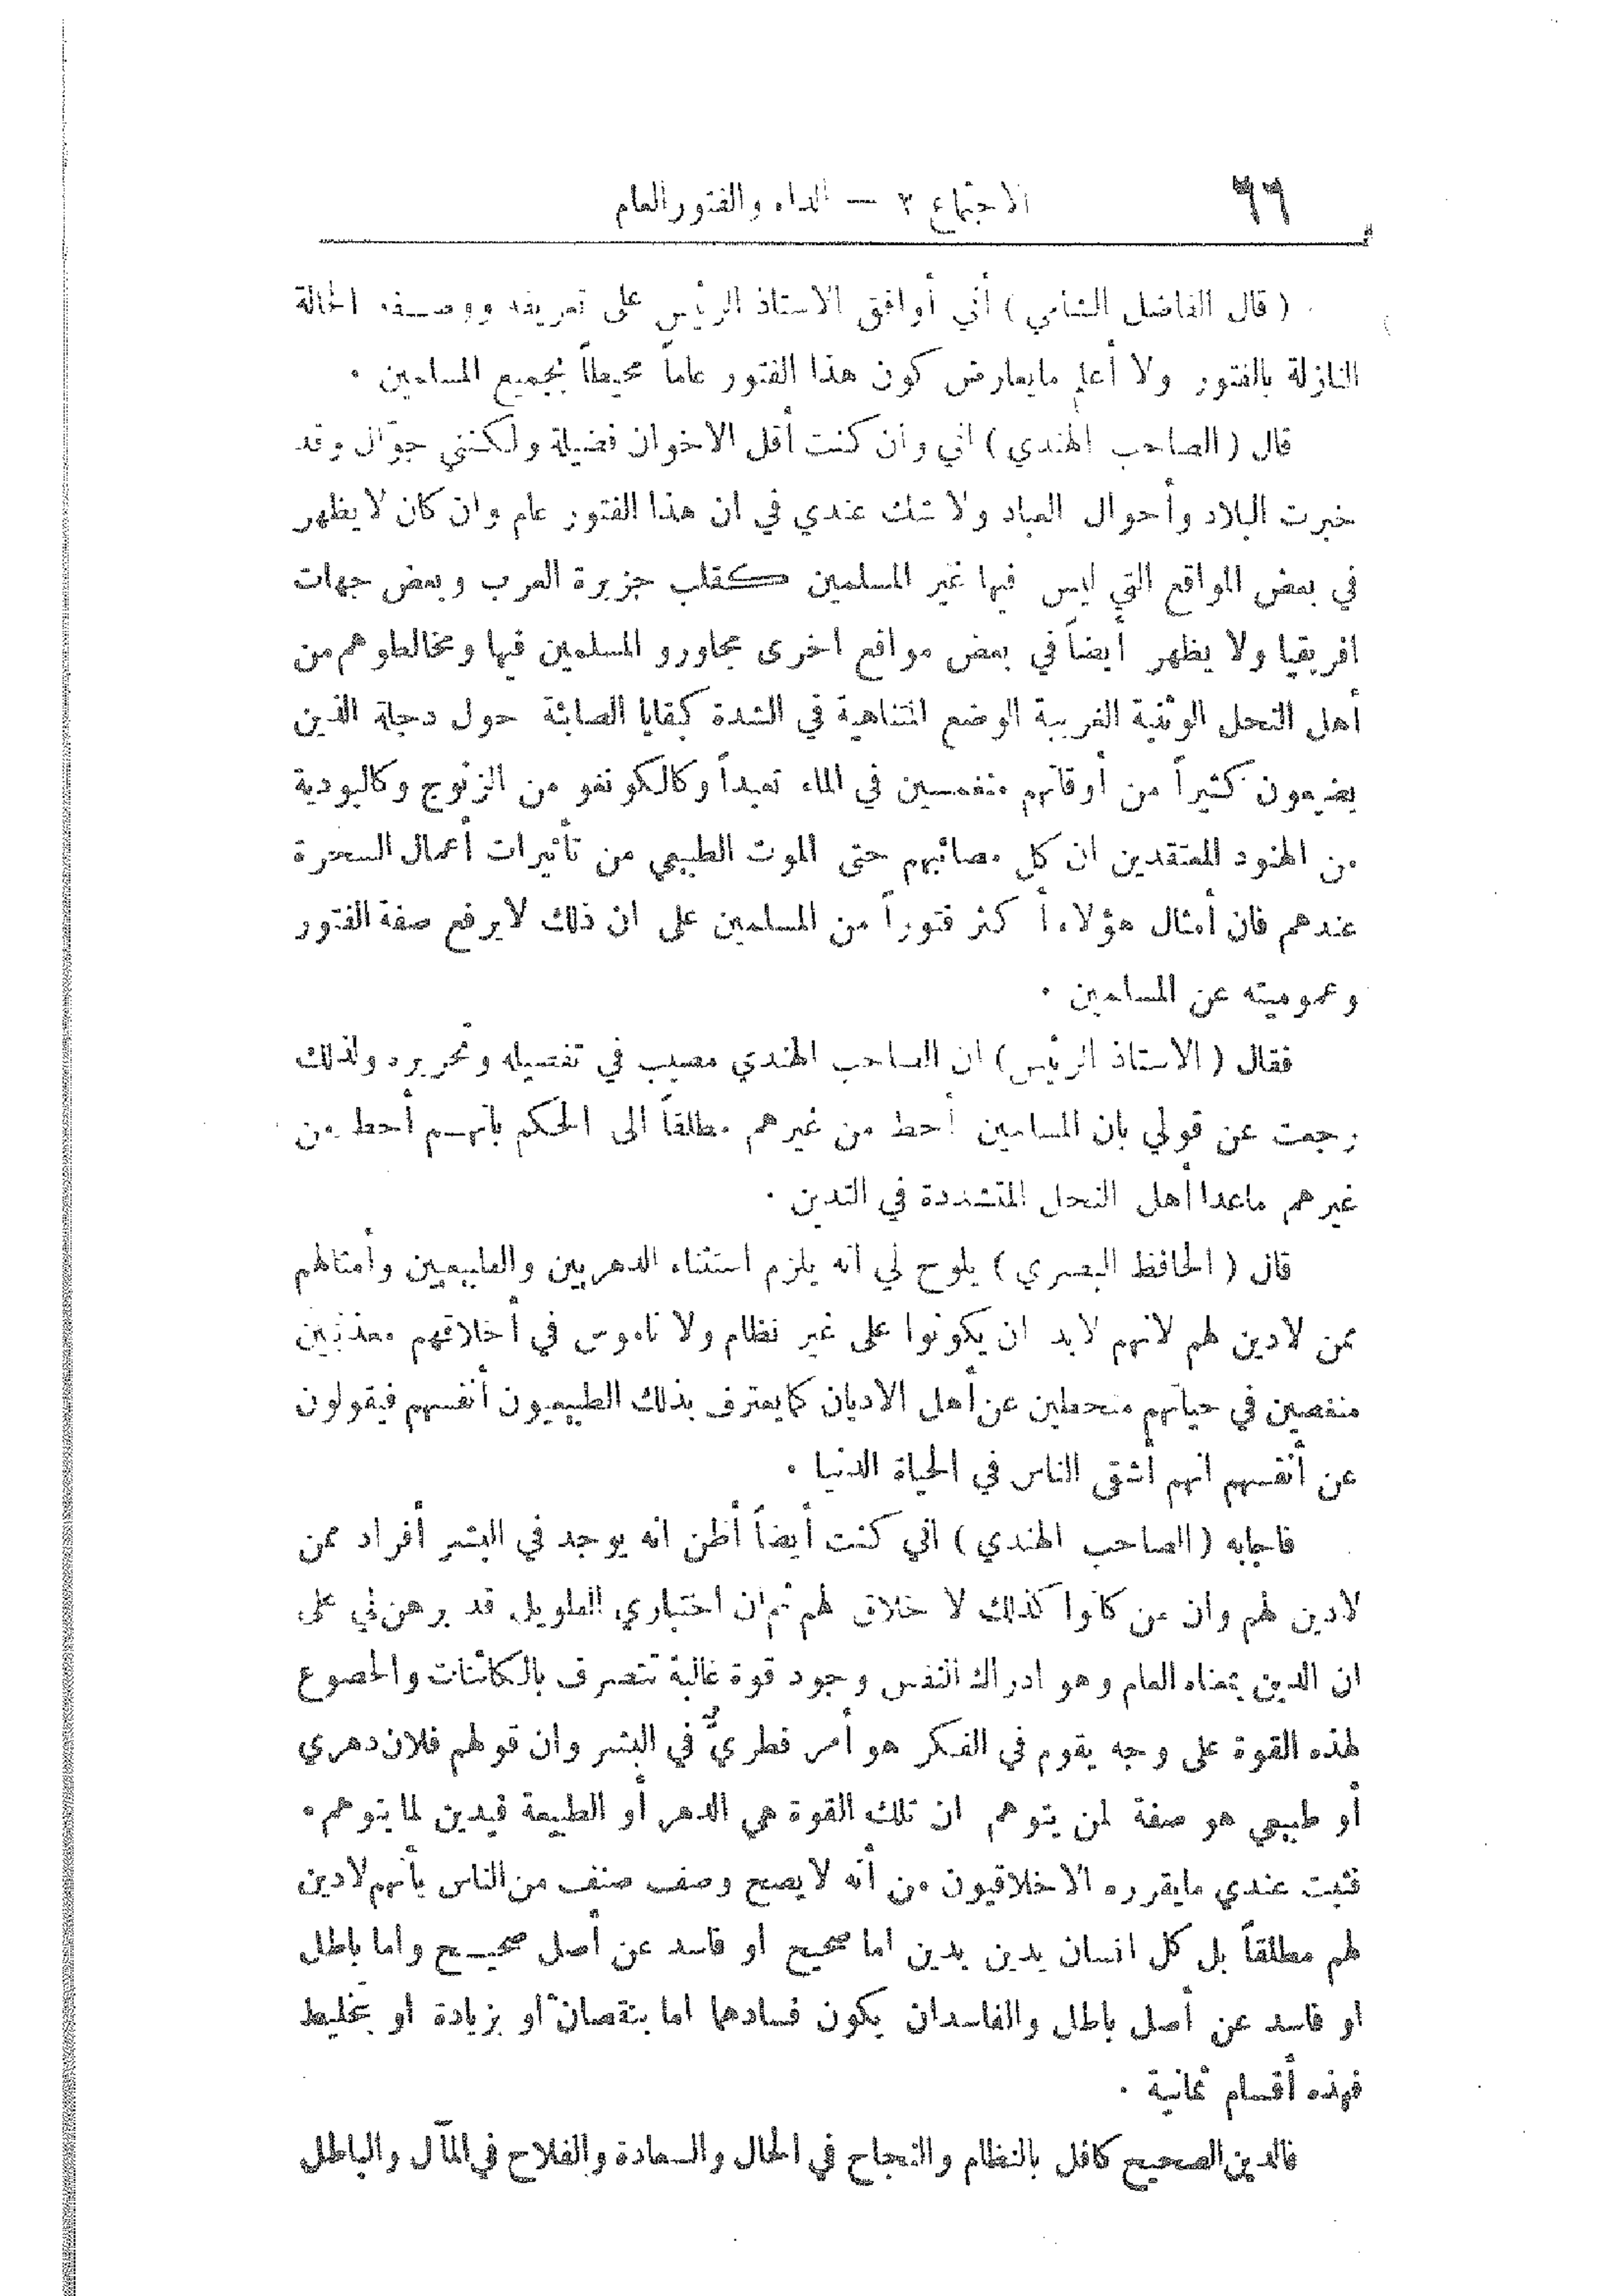 ٦٦ الاجتماع ٢ — الداء والفتور العام
( قال الفاضل الشامي ) أني أوافق الاستاذ الرئيس على تعريفه ووصفه الحالة
النازلة بالفتور ولا أعلم مايعارض كون هذا الفتور عاماً محيطاً بجميع المسلمين .
قال ( الصاحب الهندي ) اني وان كنت أقل الاخوان فضيلة ولكنني جوّال وقد
خبرت البلاد وأحوال العباد ولا شك عندي في ان هذا الفتور عام وان كان لا يظهر
في بعض المواقع التي ليس فيها غير المسلمين كقلب جزيرة العرب وبعض جهات
افريقيا ولا يظهر أيضاً في بعض مواقع اخرى مجاورو المسلمين فيها ومخالطوهم من
أهل النحل الوثنية الغريبة الوضع المتناهية في الشدة كبقايا الصابئة حول دجلة الذين
يضيعون كثيراً من أوقاتهم منغمسين في الماء تعبداً وكالكونغو من الزنوج وكالبودية
من الهنود المعتقدين ان كل مصائبهم حتى الموت الطبيعي من تأثيرات أعمال السحرة
عندهم فان أمثال هؤلاء أكثر فتوراً من المسلمين على ان ذلك لايرفع صفة الفتور
وعموميته عن المسلمين .
فقال ( الاستاذ الرئيس ) ان الصاحب الهندي مصيب في تفصيله وتحريره ولذلك
رجعت عن قولي بان المسلمين أحط من غيرهم مطلقاً الى الحكم بأنهم أحط من
غيرهم ماعدا أهل النحل المتشددة في التدين .
قال ( الحافظ البصري ) يلوح لي أنه يلزم استثناء الدهريين والطبيعيين وأمثالهم
ممن لادين لهم لانهم لابد ان يكونوا على غير نظام ولا ناموس في أخلاقهم معذبين
منغصين في حياتهم منحطين عن أهل الاديان كما يعترف بذلك الطبيعيون أنفسهم فيقولون
عن أنفسهم انهم أشقى الناس في الحياة الدنيا .
فاجابه ( الصاحب الهندي ) اني كنت أيضاً أظن انه يوجد في البشر أفراد ممن
لادين لهم وان من كانوا كذلك لا خلاق لهم ثم ان اختباري الطويل قد برهن لي على
ان الدين بمعناه العام وهو ادراك النفس وجود قوة غالبة تتصرف بالكائنات والخضوع
لهذه القوة على وجه يقوم في الفكر هو أمر فطريٌّ في البشر وان قولهم فلان دهري
أو طبيعي هو صفة لمن يتوهم ان تلك القوة هي الدهر أو الطبيعة فيدين لما يتوهم .
فثبت عندي مايقرره الاخلاقيون من أنه لا يصح وصف صنف من الناس بأنهم لادين
لهم مطلقاً بل كل انسان يدين بدين اما صحيح أو فاسد عن أصل صحيح واما باطل
او فاسد عن أصل باطل والفاسدان يكون فسادهما اما بنقصان أو بزيادة أو بتخليط
فهذه أقسام ثمانية .
فالدين الصحيح كافل بالنظام والنجاح في الحال والسعادة والفلاح في المآل والباطل